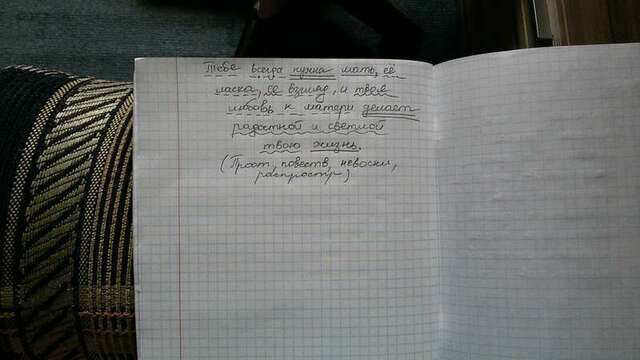 Тебе всегда нужна мать, её
ласка, её взгляд, и твоя
любовь к матери делает
радостной и светлой
твою жизнь.
(Прост, повеств, невоскл,
распростр)